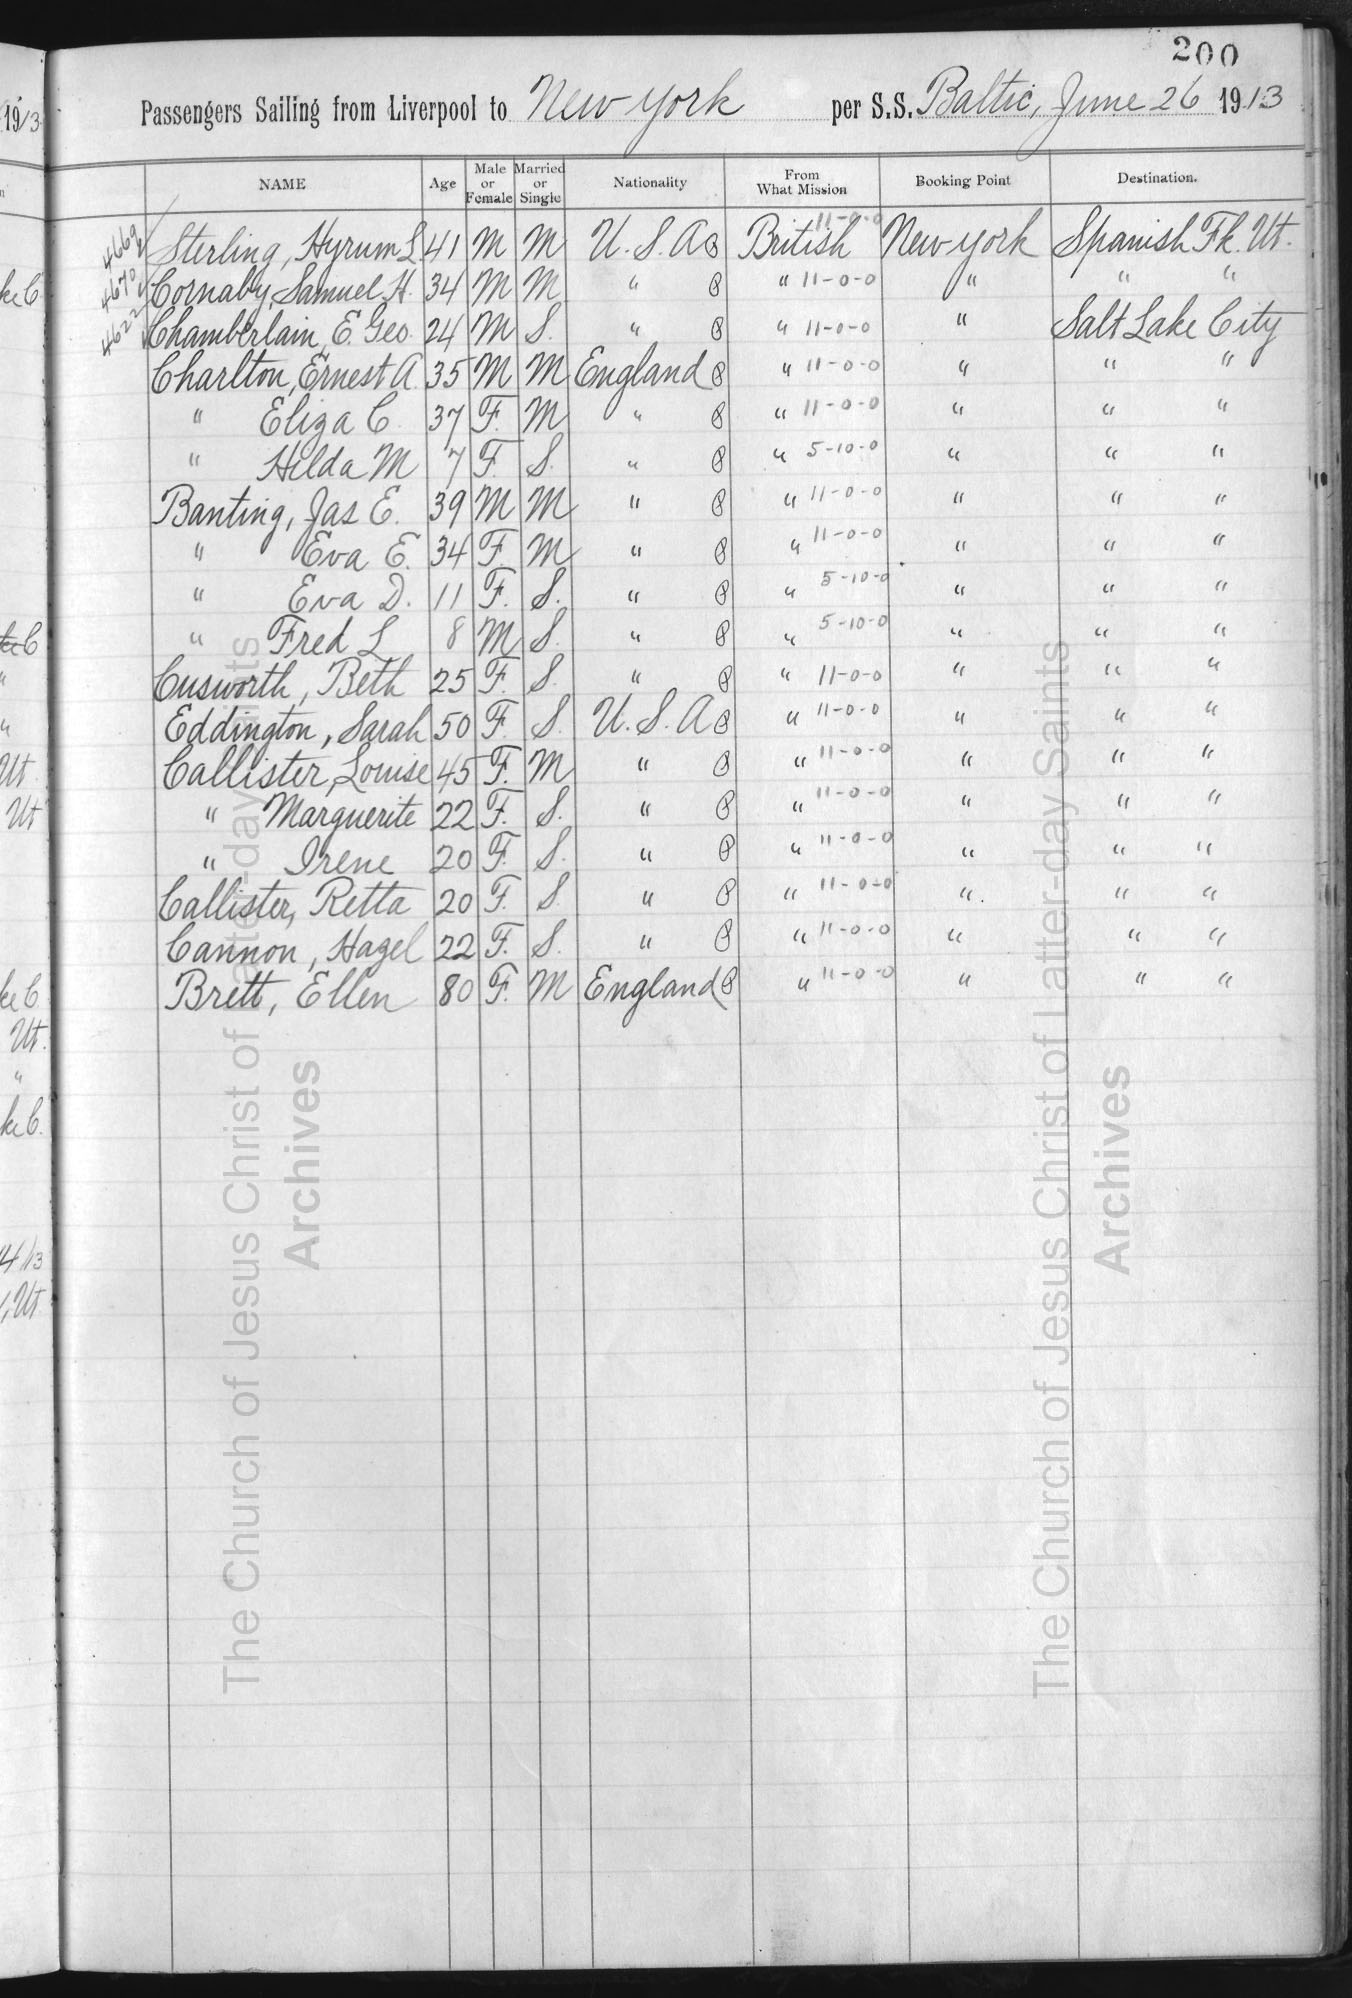 200
Passengers Sailing from Liverpool to New York per S.S. Baltic, June 26 1913
NAME Age Male or Female Married or Single Nationality From What Mission Booking Point Destination.
4669 Sterling, Hyrum S. 41 M M U.S.A. British 11-0-0 New York Spanish Fk. Ut.
4670 Cornaby, Samuel H. 34 M M " " 11-0-0 " " "
4622 Chamberlain, E. Geo. 24 M S. " " 11-0-0 " Salt Lake City
Charlton, Ernest A. 35 M M England " 11-0-0 " " "
" Eliza C. 37 F. M " " 11-0-0 " " "
" Hilda M 7 F. S. " " 5-10-0 " " "
Banting, Jas E. 39 M M " " 11-0-0 " " "
" Eva E. 34 F. M " " 11-0-0 " " "
" Eva D. 11 F. S. " " 5-10-0 " " "
" Fred L 8 M S. " " 5-10-0 " " "
Cusworth, Beth 25 F. S. " " 11-0-0 " " "
Eddington, Sarah 50 F. S. U.S.A " 11-0-0 " " "
Callister, Louise 45 F. M " " 11-0-0 " " "
" Marguerite 22 F. S. " " 11-0-0 " " "
" Irene 20 F. S. " " 11-0-0 " " "
Callister, Retta 20 F. S. " " 11-0-0 " " "
Cannon, Hazel 22 F. S. " " 11-0-0 " " "
Brett, Ellen 80 F. M England " 11-0-0 " " "
The Church of Jesus Christ of Latter-day Saints
Archives
The Church of Jesus Christ of Latter-day Saints
Archives